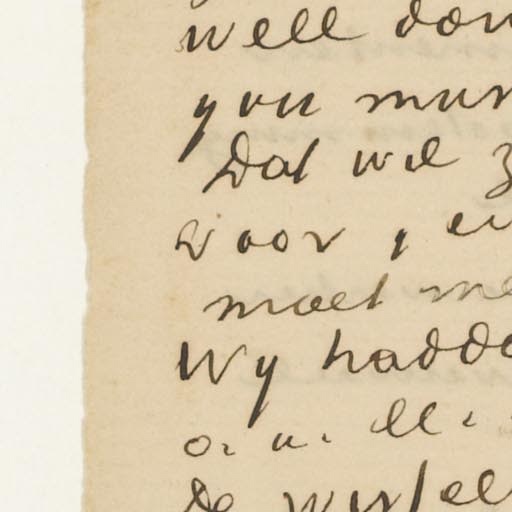 well don
you mus
Dat wil z
voor, en
moet me
Wy hadde
o. u. ll.
De wissel